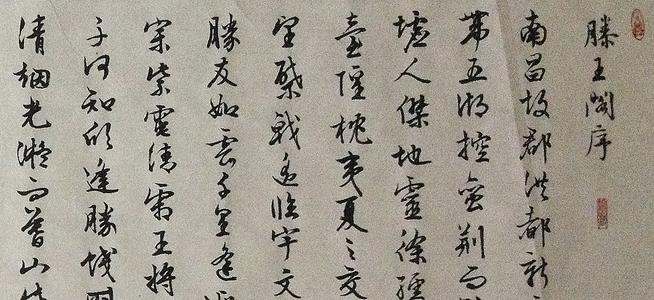 滕王閣序
南昌故郡洪都新
帶五湖控蠻荆而
墟人傑地靈徐孺
臺隍枕夷夏之交
里棨戟遥臨宇文
勝友如雲千里逢
宗紫電清霜王將
子何知躬逢勝餞
清烟光凝而暮山